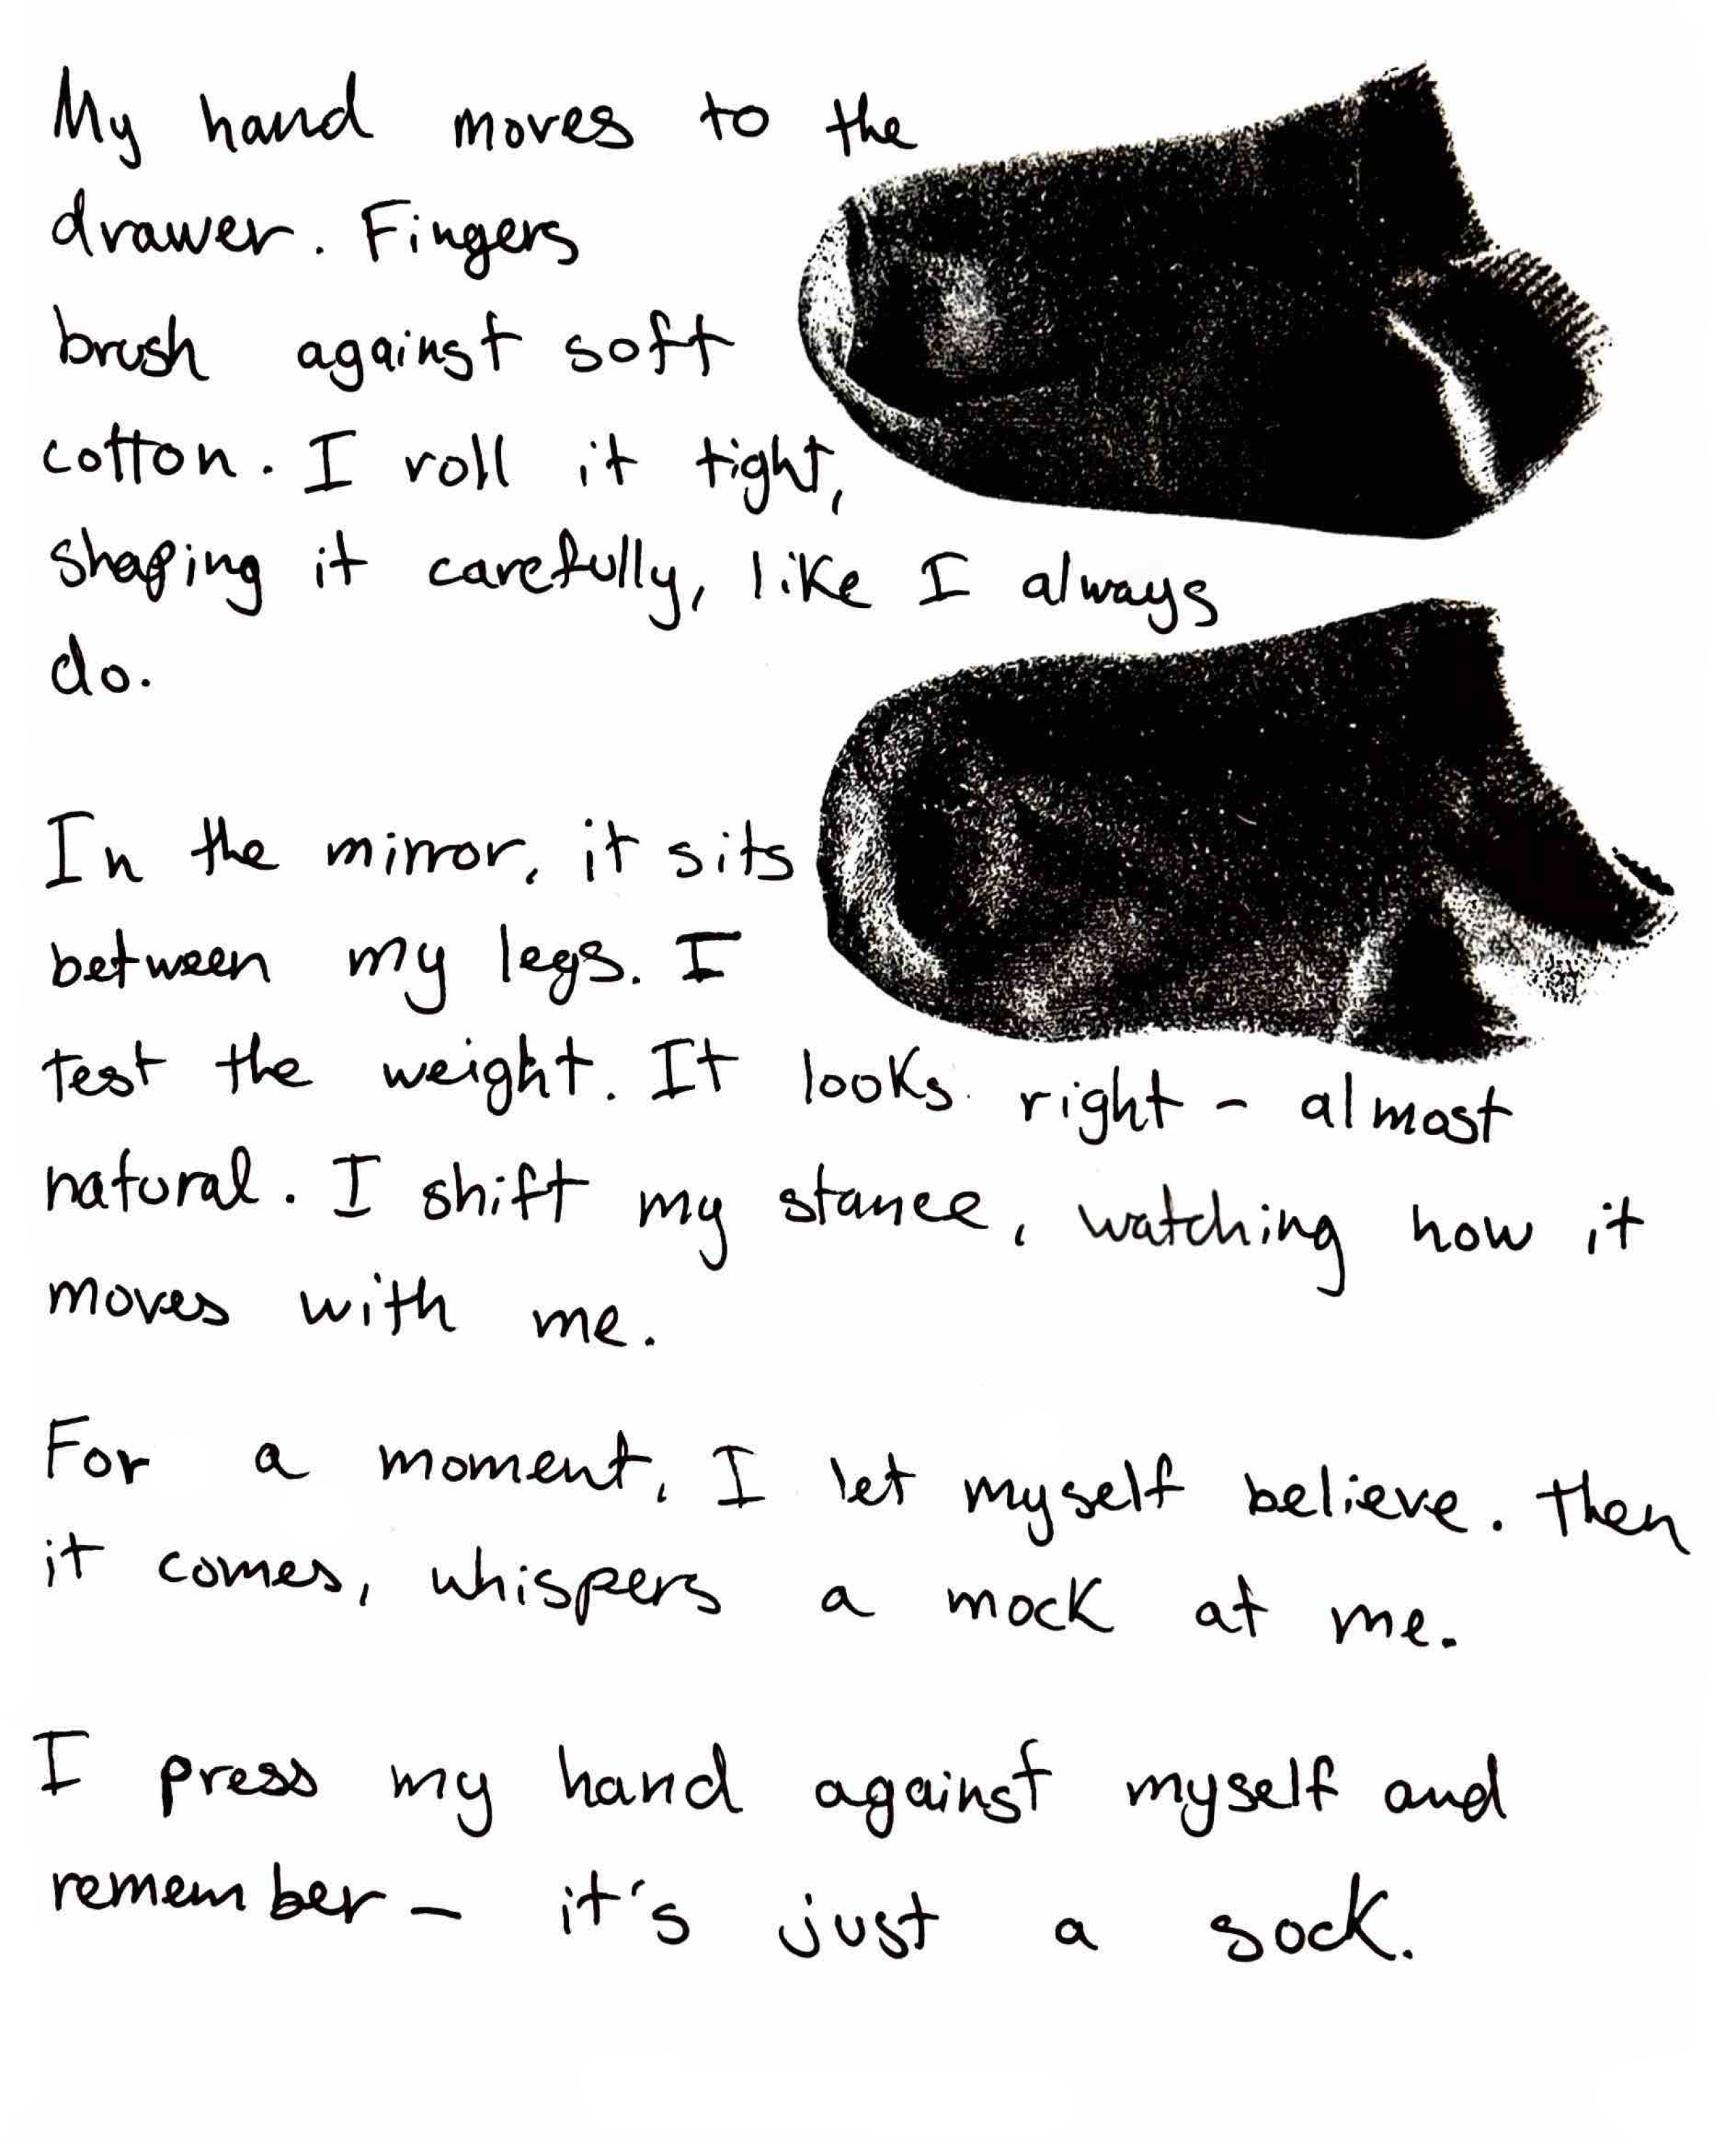 My hand moves to the
drawer. Fingers
brush against soft
cotton. I roll it tight,
shaping it carefully, like I always
do.
In the mirror, it sits
between my legs. I
test the weight. It looks right - almost
natural. I shift my stance, watching how it
moves with me.
For a moment, I let myself believe. Then
it comes, whispers a mock at me.
I press my hand against myself and
remember - it's just a sock.